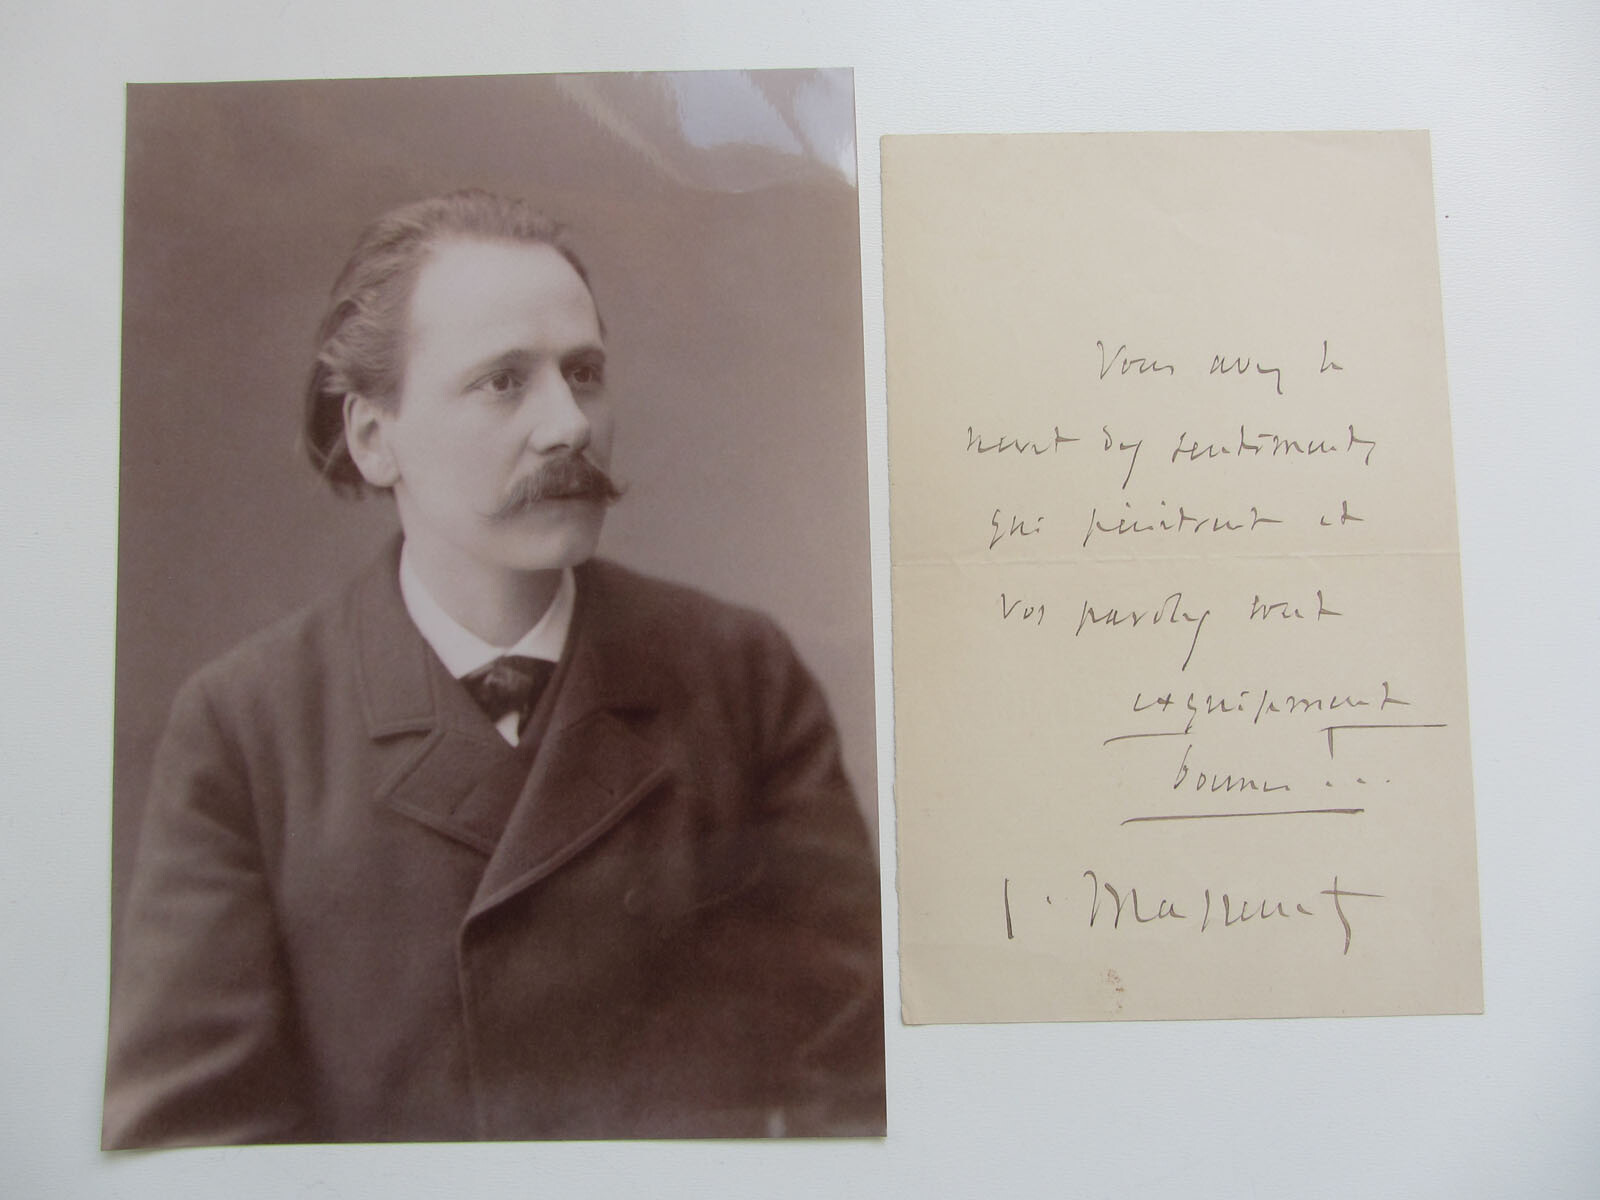 Vous avez le
secret des sentiments
qui pénètrent et
vos paroles sont
exquisement
bonnes !...
J. Massenet